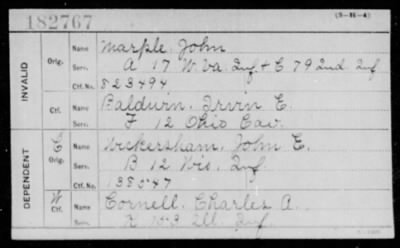 182767
(3-16-4)
INVALID
Orig.
Name Marple, John
Serv. A 17 W. Va. Inf + C 79 2nd Inf
Ctf. No. 823494
Ctf.
Name Baldwin, Irvin E.
Serv. F 12 Ohio Cav.
DEPENDENT
C
Orig.
Name Wickersham, John E.
Serv. B 12 Wis. Inf
Ctf. No. 138547
W
Ctf.
Name Cornell, Charles A.
Serv. Ill. Inf.